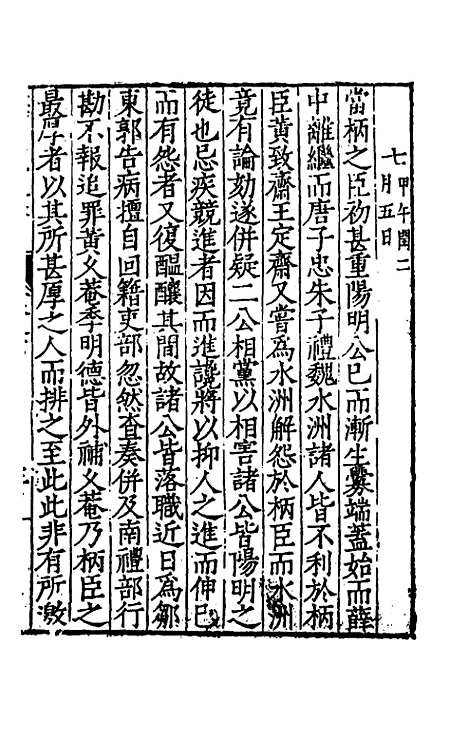 七月五日甲午閏二
當柄之臣初甚重陽明公已而漸生釁端蓋始而薛
中離繼而唐子忠朱子禮魏水洲諸人皆不利於柄
臣黄致齋王定齋又嘗爲水洲解怨於柄臣而水洲
竟有論劾遂併疑二公相黨以相害諸公皆陽明之
徒也忌疾競進者因而進讒將以抑人之進而伸已
而有怨者又復醞釀其間故諸公皆落職近日爲鄒
東郭告病擅自回籍吏部忽然查奏併及南禮部行
勘不報追罪黄久菴季明德皆外補久菴乃柄臣之
最厚者以其所甚厚之人而排之至此此非有所激